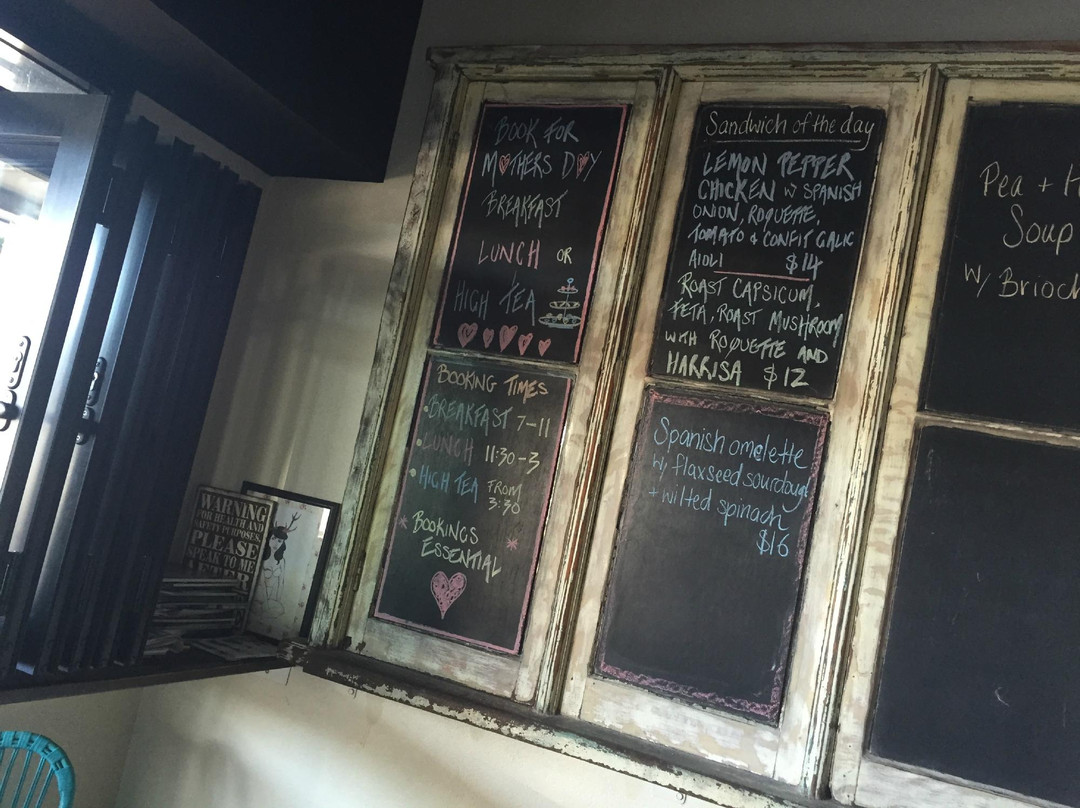 BOOK FOR
MOTHERS DAY
BREAKFAST
LUNCH OR
HIGH TEA
BOOKING TIMES
•BREAKFAST 7-11
•LUNCH 11:30-3
•HIGH TEA FROM
3:30
* BOOKINGS *
ESSENTIAL
Sandwich of the day
LEMON PEPPER
CHICKEN W SPANISH
ONION, ROQUETTE,
TOMATO & CONFIT GALIC
AIOLI $14
ROAST CAPSICUM,
FETA, ROAST MUSHROOM
WITH ROQUETTE AND
HARRISA $12
Spanish omelette
w/ flaxseed sourdough
+ wilted spinach
$16
Pea + H
Soup
W/ Brioch
WARNING
FOR HEALTH AND
SAFETY PURPOSES,
PLEASE
SPEAK TO ME
AFTER